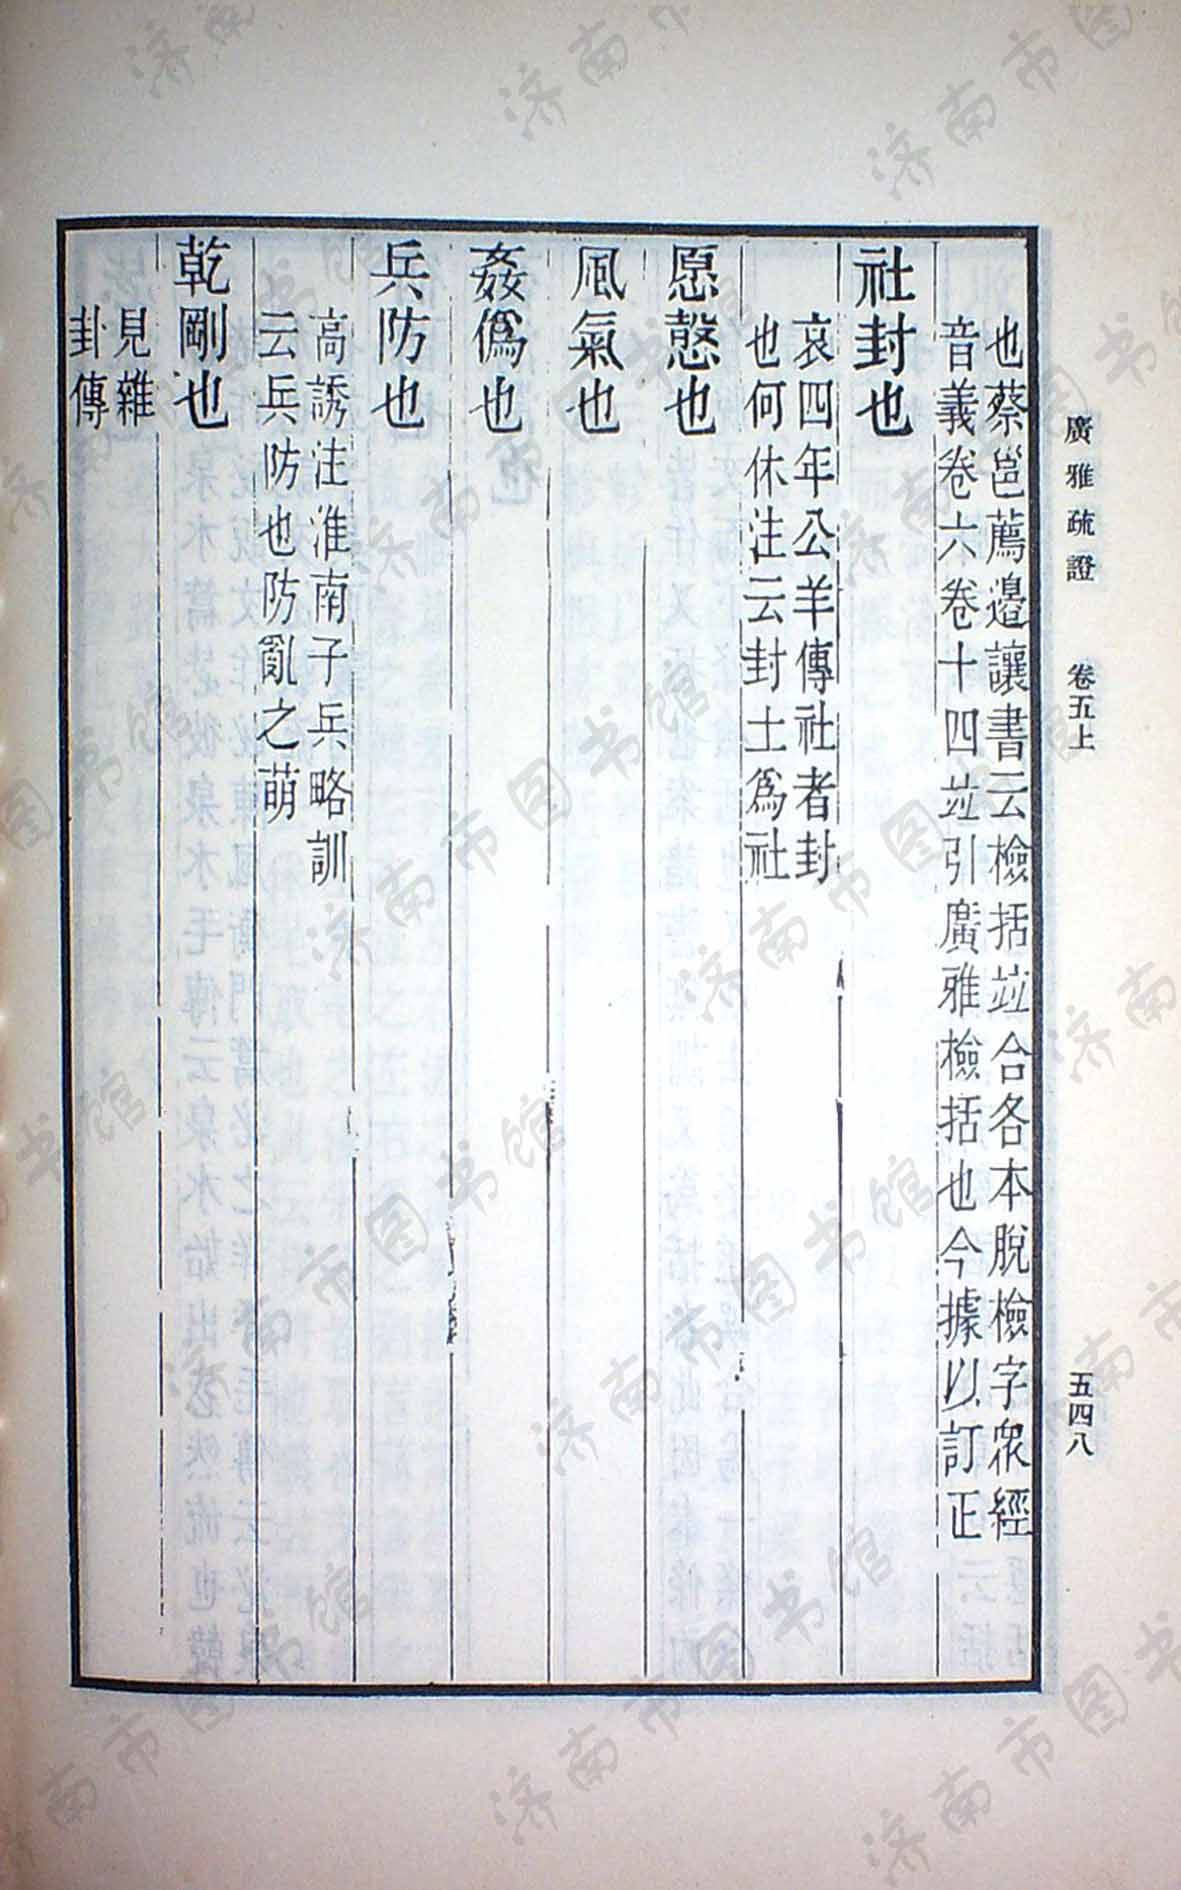 廣雅疏證　卷五上　五四八
也蔡邕薦邊讓書云檢括竝合各本脫檢字衆經
音義卷六卷十四竝引廣雅檢括也今據以訂正
社封也
哀四年公羊傳社者封
也何休注云封土爲社
愿慤也
風氣也
姦僞也
兵防也
高誘注淮南子兵略訓
云兵防也防亂之萌
乾剛也
見雜
卦傳
济南市图书馆